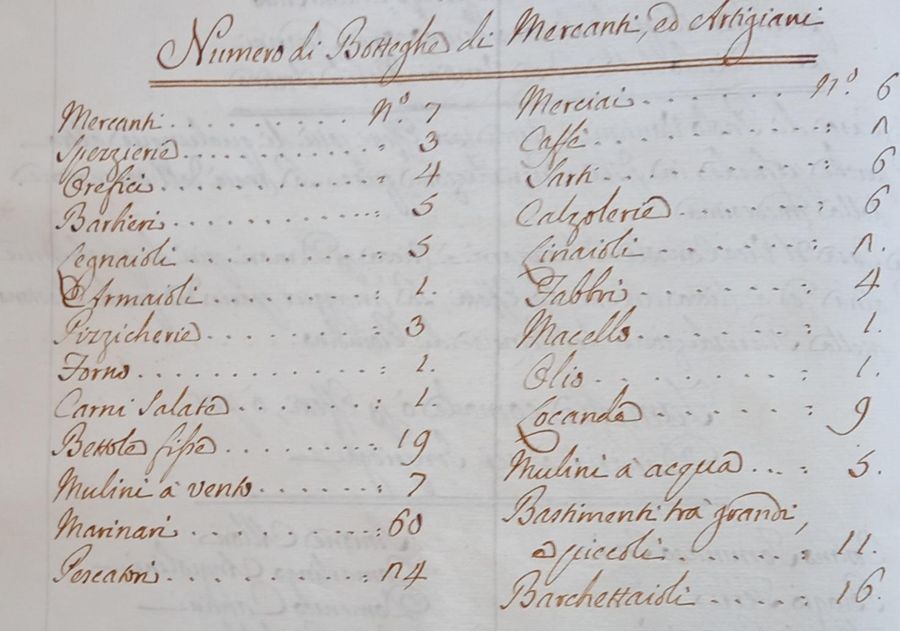 Numero di Botteghe di Mercanti, ed Artigiani
Mercanti . . . . . . . . . . n.º 7
Spezzierie . . . . . . . . . . : 3
Orefici . . . . . . . . . . . : 4
Barbieri . . . . . . . . . . . : 5
Legnaioli . . . . . . . . . . : 5
Armaioli . . . . . . . . . : 1.
Pizzicherie . . . . . . . . : 3
Forno . . . . . . . . . . . . : 1.
Carni Salate . . . . . . . . : 1
Bettole fisse . . . . . . . . : 19
Mulini à vento . . . . . . . : 7
Marinari . . . . . . . . . . : 60
Pescatori . . . . . . . . . . 24
Merciai . . . . . . . . . n.º 6
Caffè . . . . . . . . . . . : 2
Sarti . . . . . . . . . . . : 6
Calzolerie . . . . . . . . : 6
Linaioli . . . . . . . . . : 2.
Fabbri . . . . . . . . . . : 4
Macello . . . . . . . . . : 1.
Olio . . . . . . . . . . . : 1.
Locande . . . . . . . . . : 9
Mulini à acqua . . . : 5.
Bastimenti trà grandi,
e piccoli . . . . . . . : 11.
Barchettaioli . . . . . : 16.